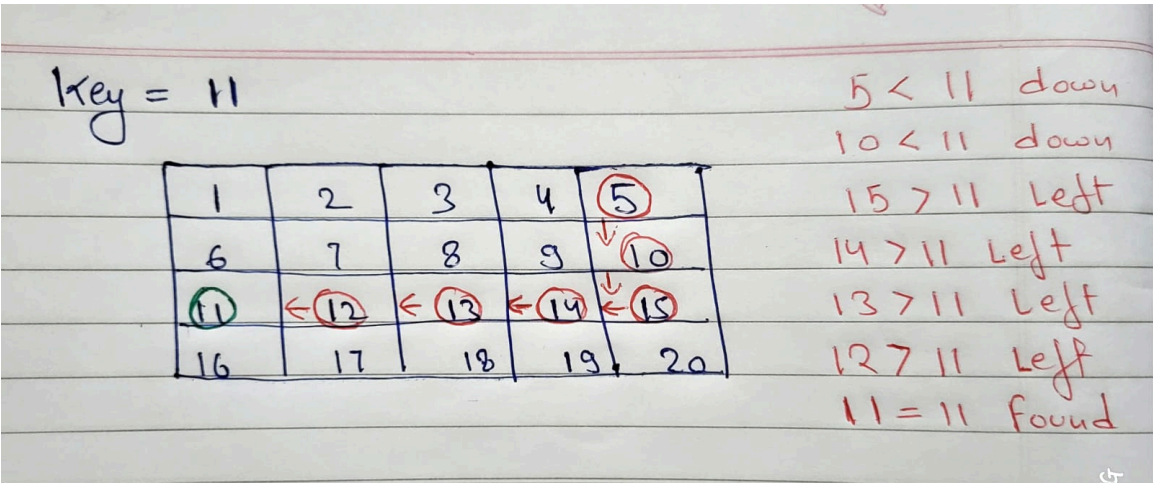 Key = 11
1 2 3 4 5
6 7 8 9 10
11 12 13 14 15
16 17 18 19 20
5 < 11 down
10 < 11 down
15 > 11 Left
14 > 11 Left
13 > 11 Left
12 > 11 Left
11 = 11 Found